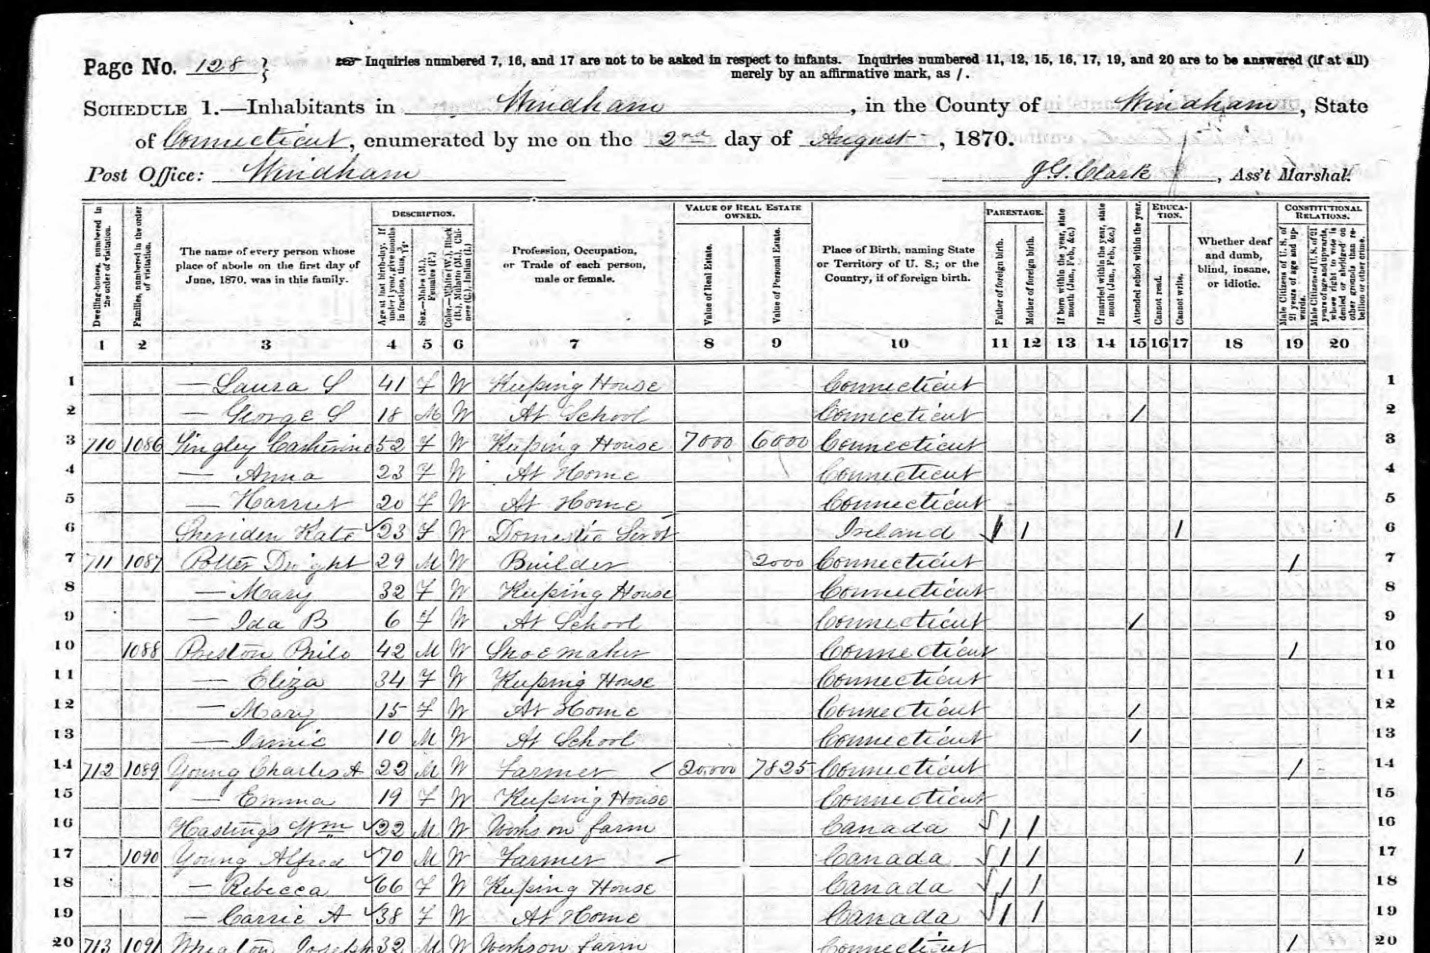 Page No. 128 } Inquiries numbered 7, 16, and 17 are not to be asked in respect to infants. Inquiries numbered 11, 12, 15, 16, 17, 19, and 20 are to be answered (if at all)
merely by an affirmative mark, as /.
SCHEDULE 1.—Inhabitants in Windham, in the County of Windham, State
of Connecticut, enumerated by me on the 2nd day of August, 1870.
Post Office: Windham J G. Clark, Ass't Marshal.
Dwelling-houses, numbered in the order of visitation.
Families, numbered in the order of visitation.
The name of every person whose place of abode on the first day of June, 1870, was in this family.
DESCRIPTION.
Age at last birth-day. If under 1 year, give months in fractions, thus,
Sex.—Males (M.), Females (F.)
Color.—White (W.), Black (B.), Mulatto (M.), Chinese (C.), Indian (I.)
Profession, Occupation, or Trade of each person, male or female.
VALUE OF REAL ESTATE OWNED.
Value of Real Estate.
Value of Personal Estate.
Place of Birth, naming State or Territory of U. S.; or the Country, if of foreign birth.
PARENTAGE.
Father of foreign birth.
Mother of foreign birth.
If born within the year, state month (Jan., Feb., &c.)
If married within the year, state month (Jan., Feb., &c.)
Attended school within the year.
EDUCATION.
Cannot read.
Cannot write.
Whether deaf and dumb, blind, insane, or idiotic.
CONSTITUTIONAL RELATIONS.
Male Citizens of U. S. of 21 years of age and upwards.
Male Citizens of U. S. of 21 years of age and upwards, whose right to vote is denied or abridged on other grounds than rebellion or other crime.
1 2 3 4 5 6 7 8 9 10 11 12 13 14 15 16 17 18 19 20
1 — Laura S 41 F W Keeping House Connecticut 1
2 — George S 18 M W At School Connecticut / 2
3 710 1086 Catherine 52 F W Keeping House 7000 6000 Connecticut 3
4 — Anna 23 F W At Home Connecticut 4
5 — Harriet 20 F W At Home Connecticut 5
6 Sheriden Kate 23 F W Domestic Servt Ireland / / / 6
7 711 1087 Potter Dwight 29 M W Builder 2000 Connecticut / 7
8 — Mary 32 F W Keeping House Connecticut 8
9 — Ida B 6 F W At School Connecticut / 9
10 1088 Preston Philo 42 M W Shoemaker Connecticut / 10
11 — Eliza 34 F W Keeping House Connecticut 11
12 — Mary 15 F W At Home Connecticut / 12
13 — Jamie 10 M W At School Connecticut / 13
14 712 1089 Young Charles A 22 M W Farmer 20,000 7825 Connecticut / 14
15 — Emma 19 F W Keeping House Connecticut 15
16 Hastings Wm 22 M W Works on farm Canada / / 16
17 1090 Young Alfred 70 M W Farmer Canada / / / 17
18 — Rebecca 66 F W Keeping House Canada / / 18
19 — Carrie A 38 F W At Home Canada / / 19
20 713 1091 Wheaton Joseph 32 M W Works on farm Connecticut / 20